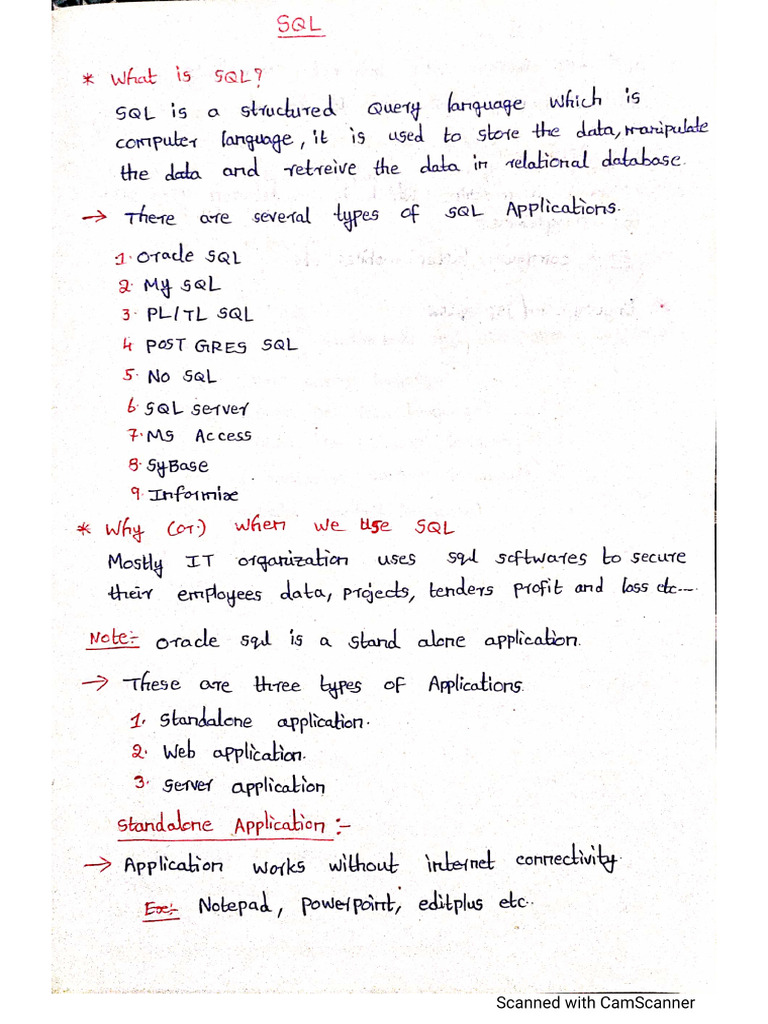 SQL
* What is SQL?
SQL is a structured Query language which is
computer language, it is used to store the data, manipulate
the data and retreive the data in relational database.
→ There are several types of SQL Applications.
1. Oracle SQL
2. My SQL
3. PL/TL SQL
4 POST GRES SQL
5. NO SQL
6. SQL Server
7. MS Access
8. SyBase
9. Informix
* Why (or) when we use SQL
Mostly IT organization uses sql softwares to secure
their employees data, projects, tenders profit and loss etc...
Note:- Oracle sql is a stand alone application.
→ These are three types of Applications.
1. Standalone application.
2. Web application.
3. Server application
Standalone Application :-
→ Application works without internet connectivity.
Ex:- Notepad, Powerpoint, editplus etc..
Scanned with CamScanner